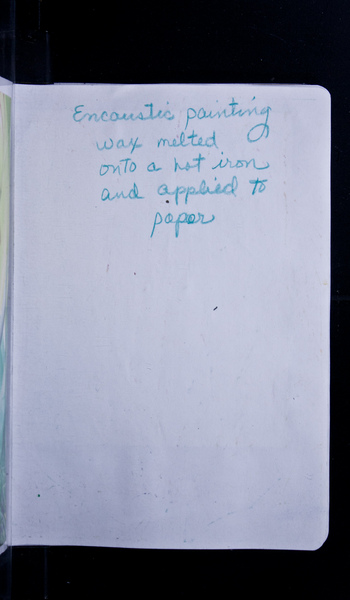 Encaustic painting
wax melted
onto a hot iron
and applied to
paper